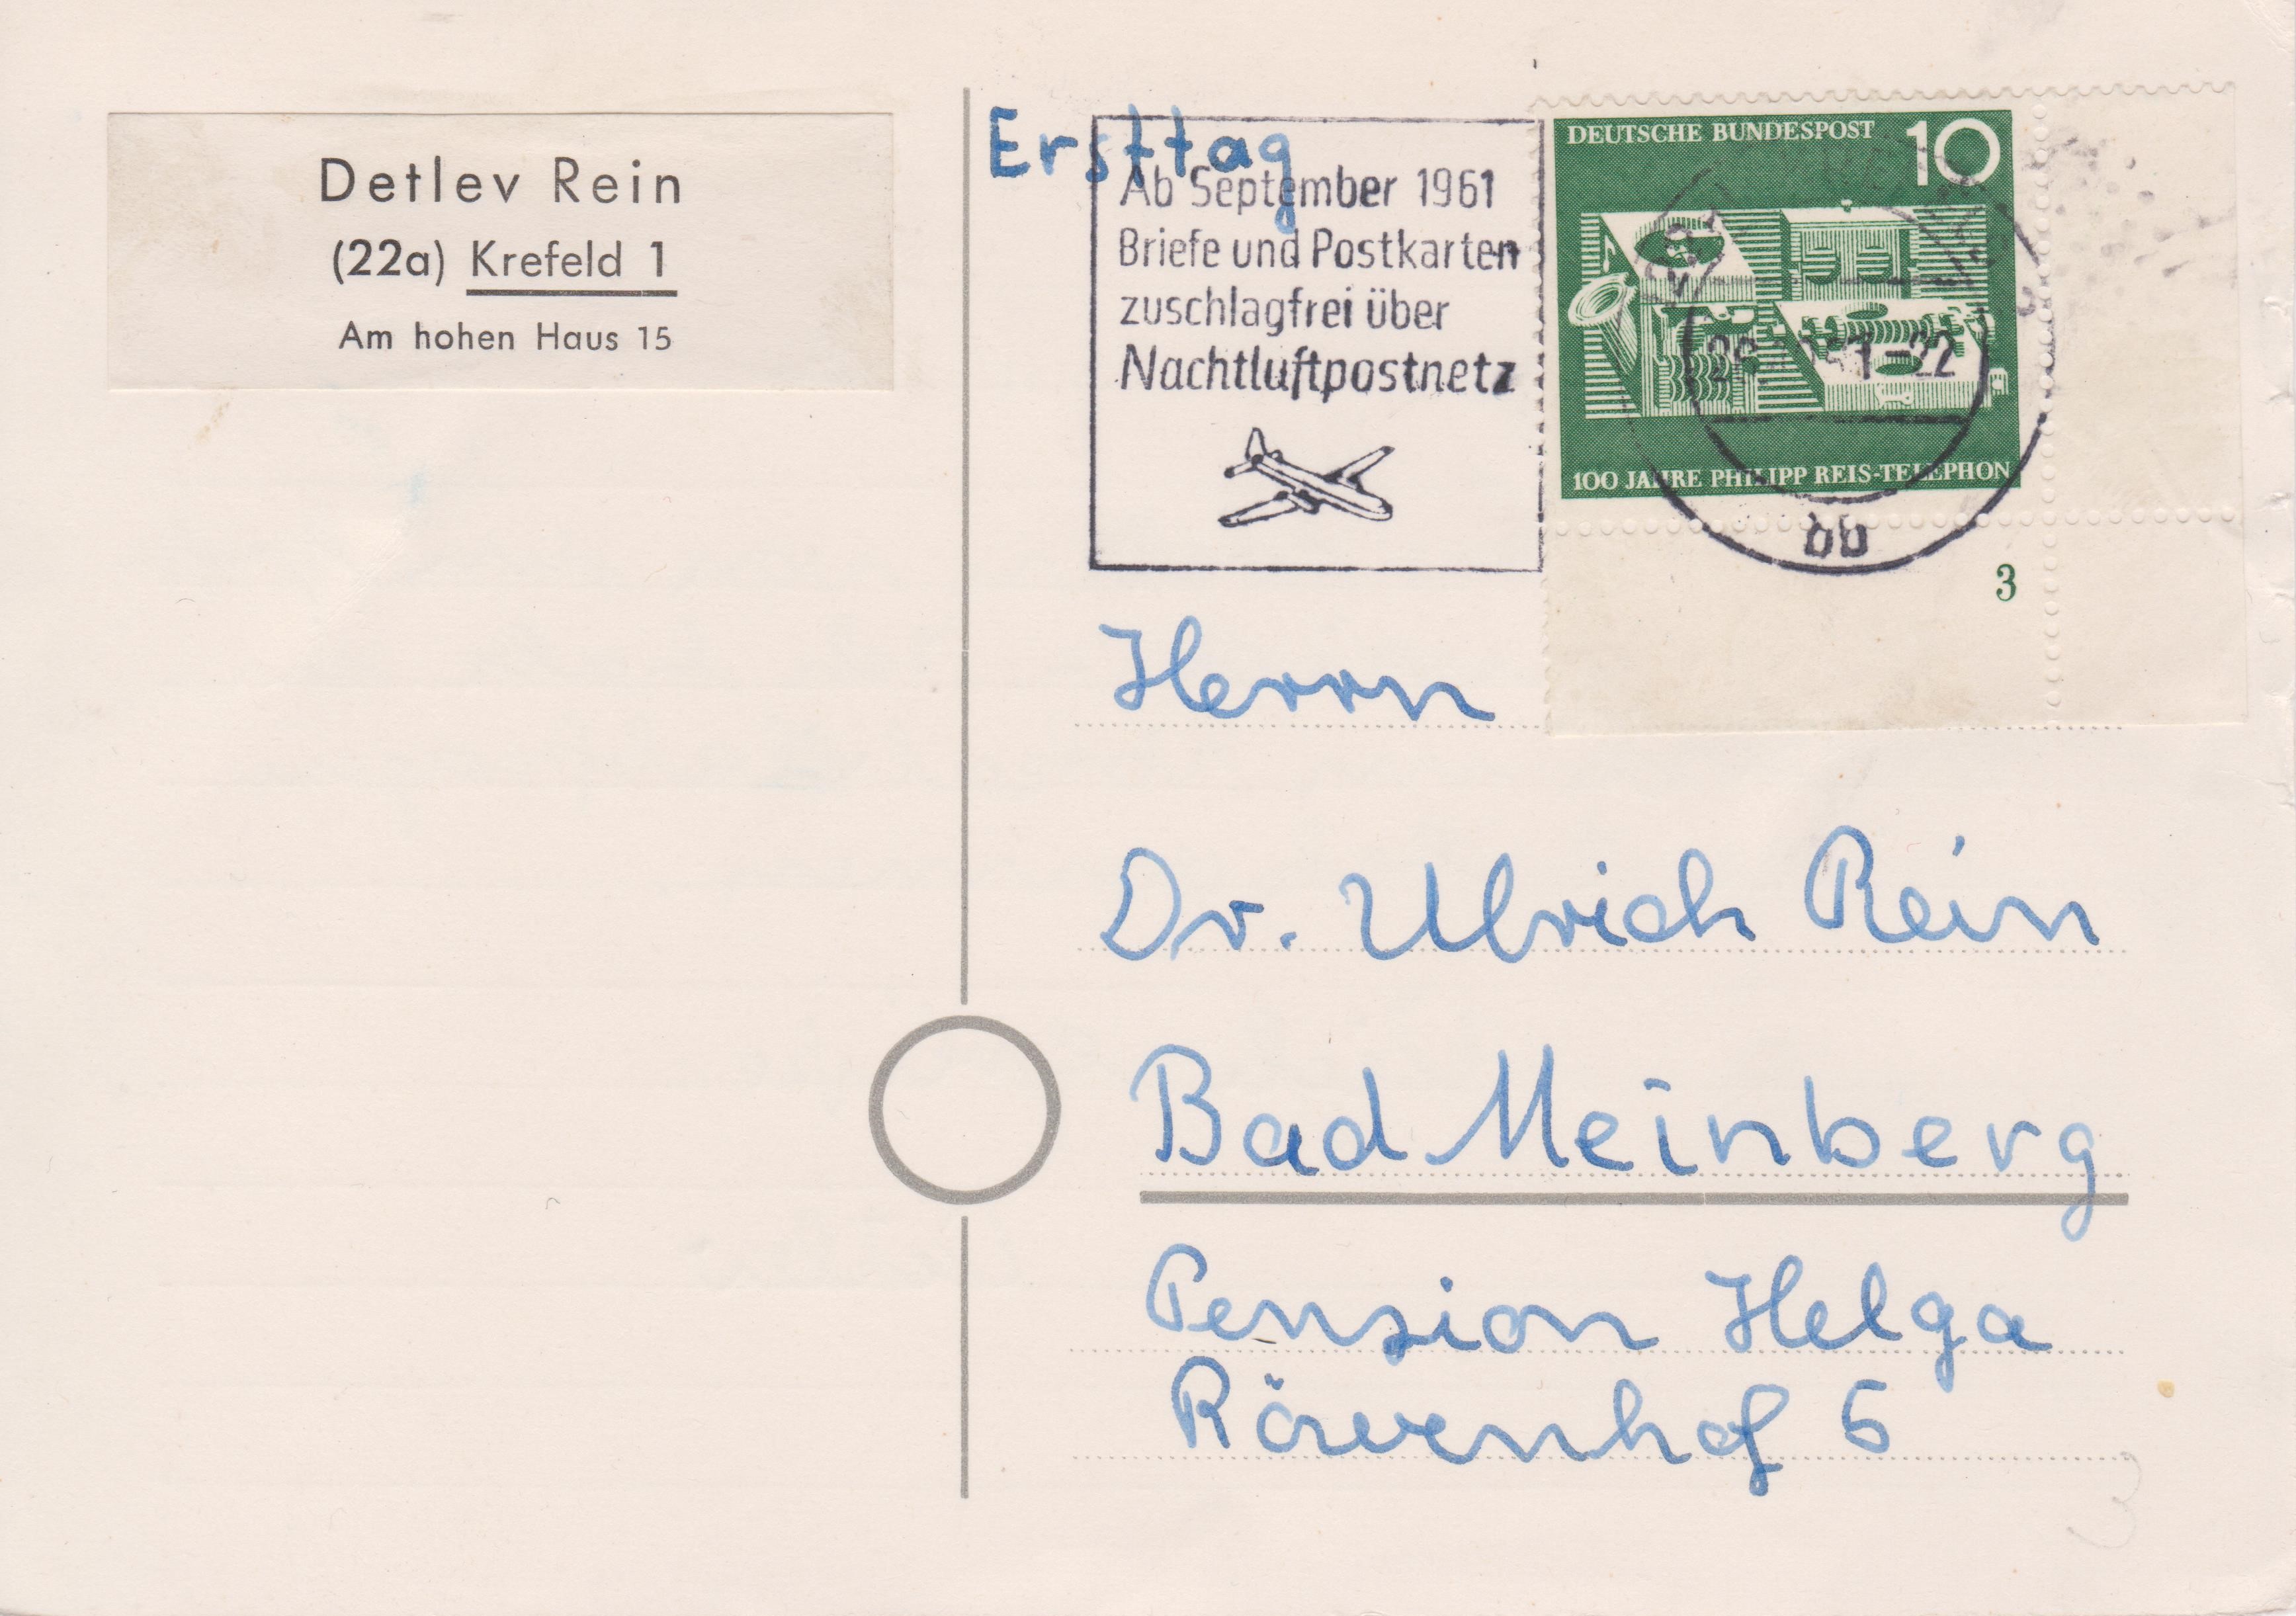 Detlev Rein
(22a) Krefeld 1
Am hohen Haus 15
Ersttag
Ab September 1961
Briefe und Postkarten
zuschlagfrei über
Nachtluftpostnetz
DEUTSCHE BUNDESPOST 10
-22
100 JAHRE PHILIPP REIS-TELEPHON
bb
3
Herrn
Dr. Ulrich Rein
Bad Meinberg
Pension Helga
Röwenhof 5